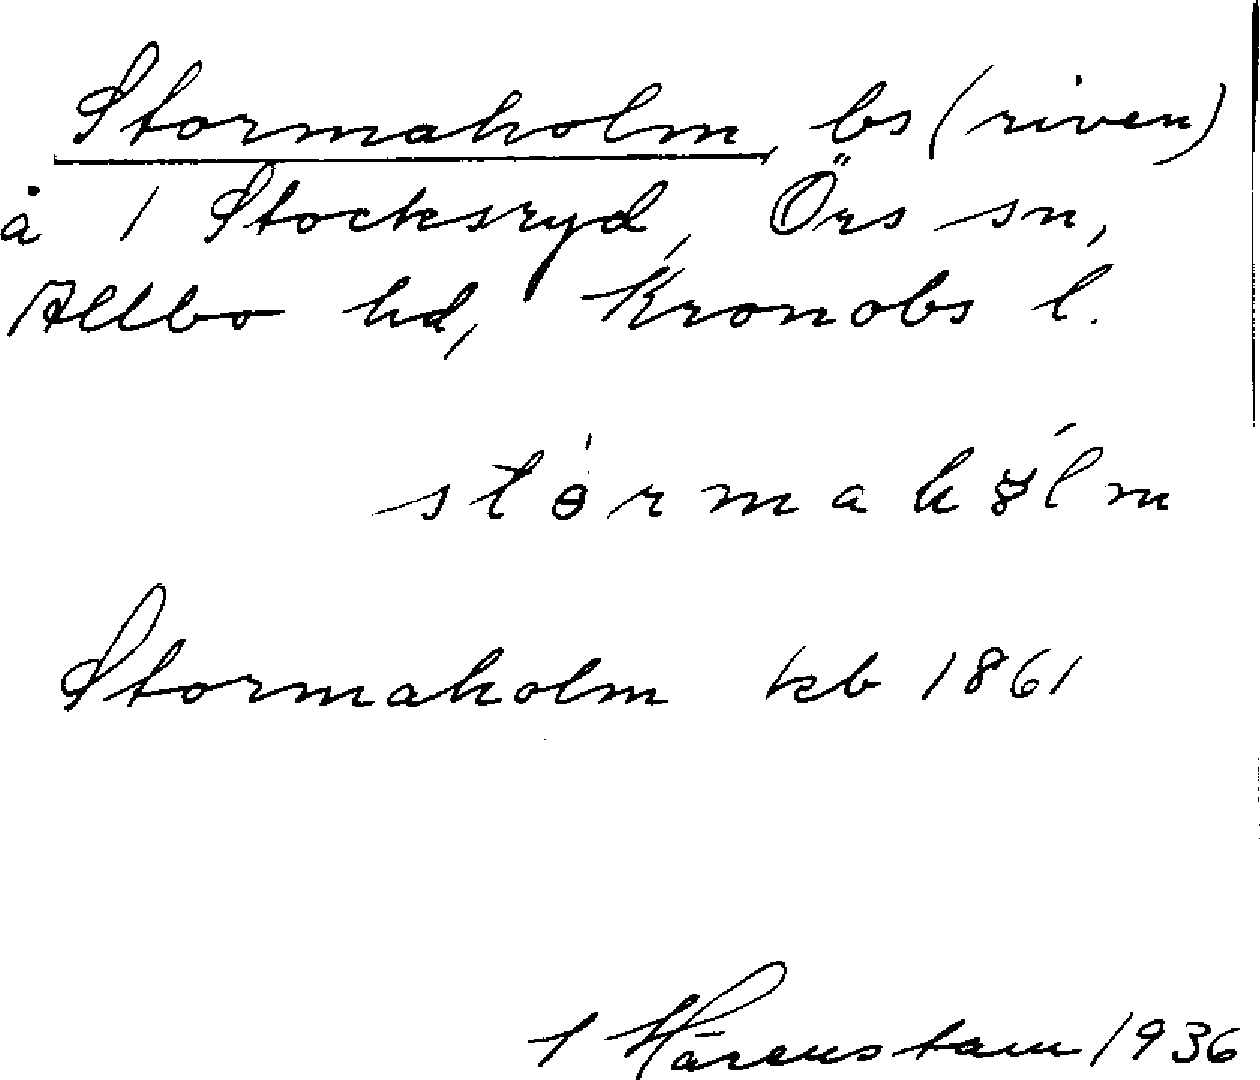 Stormaholm, bs (riven)
å 1 Stocksryd, Örs sn,
Allbo hd, Kronobs l.
Stormaholm kb 1861
Hårenstam 1936